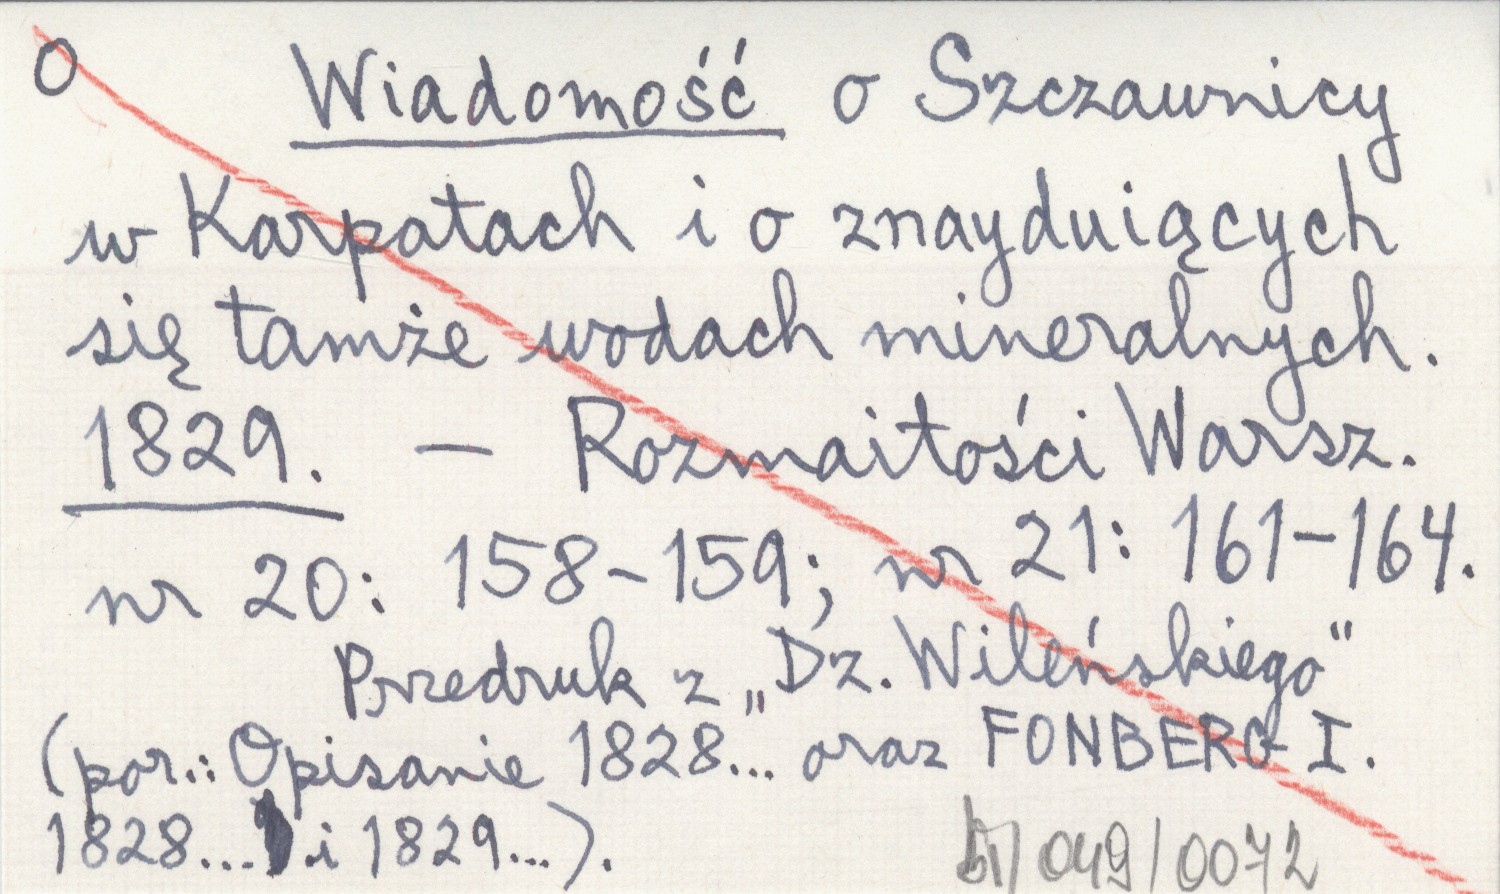 O Wiadomość o Szczawnicy
w Karpatach i o znayduiących
się tamże wodach mineralnych.
1829. — Rozmaitości Warsz.
nr 20: 158-159; nr 21: 161-164.
Przedruk z „Dz. Wileńskiego"
(por.: Opisanie 1828... oraz FONBERG I.
1828... i 1829...).
/049/0072